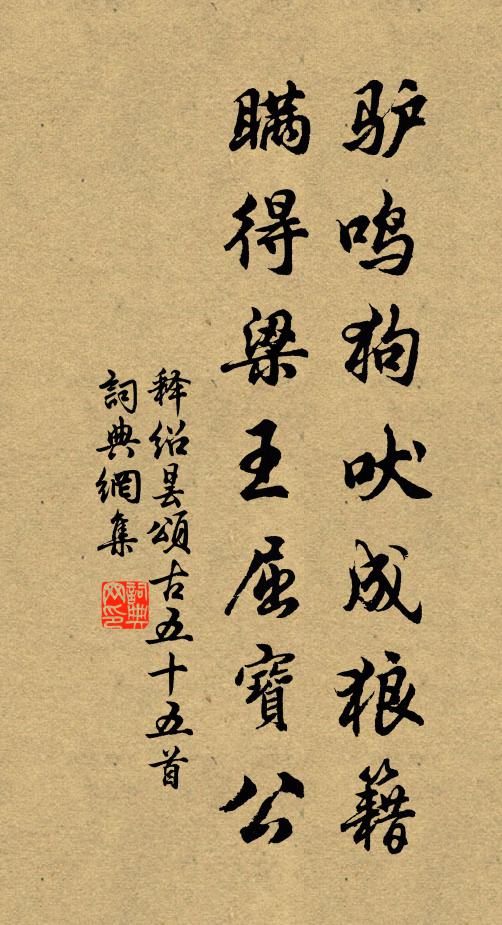 驴鸣狗吠成狼籍
瞒得梁王屈寶公
释绍昙頌古五十五首
詞典網集
詞典網印